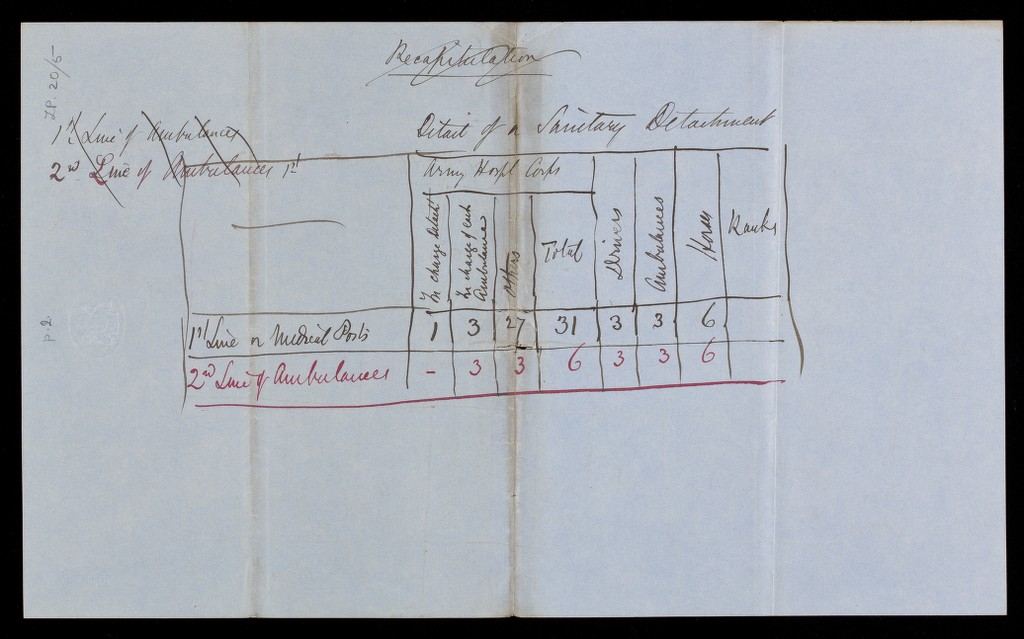 Recapitulation
LP. 20/5
1st Line of Ambulances
2nd Line of Ambulances 1st
Detail of a Sanitary Detachment
Army Hospl Corps
In charge Detacht
In charge of each Ambulance
Others
Total
Drivers
Ambulances
Horses
Ranks
1st Line or Medical Posts 1 3 27 31 3 3 6
2nd Line of Ambulances - 3 3 6 3 3 6
p. 2.